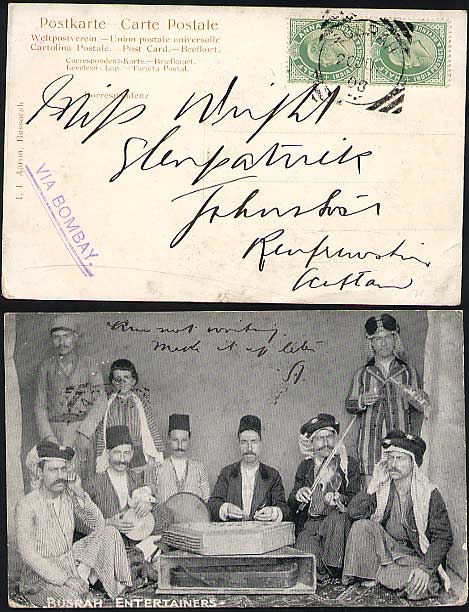 Postkarte - Carte Postale
Weltpostverein.—Union postale universelle
Cartolina Postale. - Post Card.—Brefkort.
Correspondenz-Karte.—Briefkaart
Levelezo-Lap. - Tarjeta Postal.
Correspondenz
Miss Wright
Glenpatrick
Johnstone
Renfrewshire
Scotland
I. I Aaron, Bussorah
VIA BOMBAY.
INDIA
INDIA
Am not writing
Made it up later
BUSRAH ENTERTAINERS.